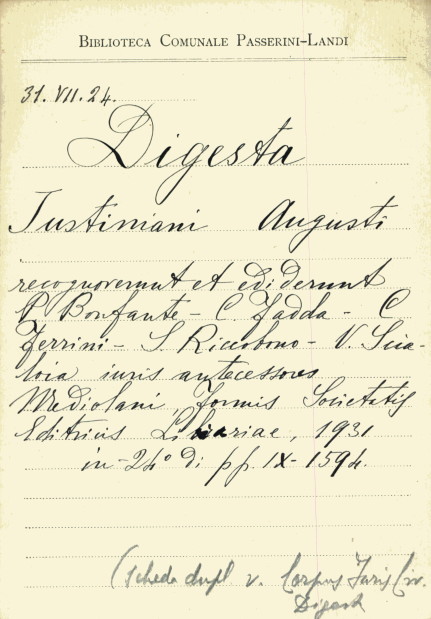 BIBLIOTECA COMUNALE PASSERINI-LANDI
31. VII. 24.
Digesta
Iustiniani Augusti
recognoverunt et ediderunt
P. Bonfante - C. Fadda - C.
Ferrini - S. Riccobono - V. Scia-
loia iuris antecessores
Mediolani, Formis Societatis
Editricis Librariae, 1931
in - 24° di pp. IX - 1594.
(Scheda dupl v. Corpus Juris Civ.
Digest